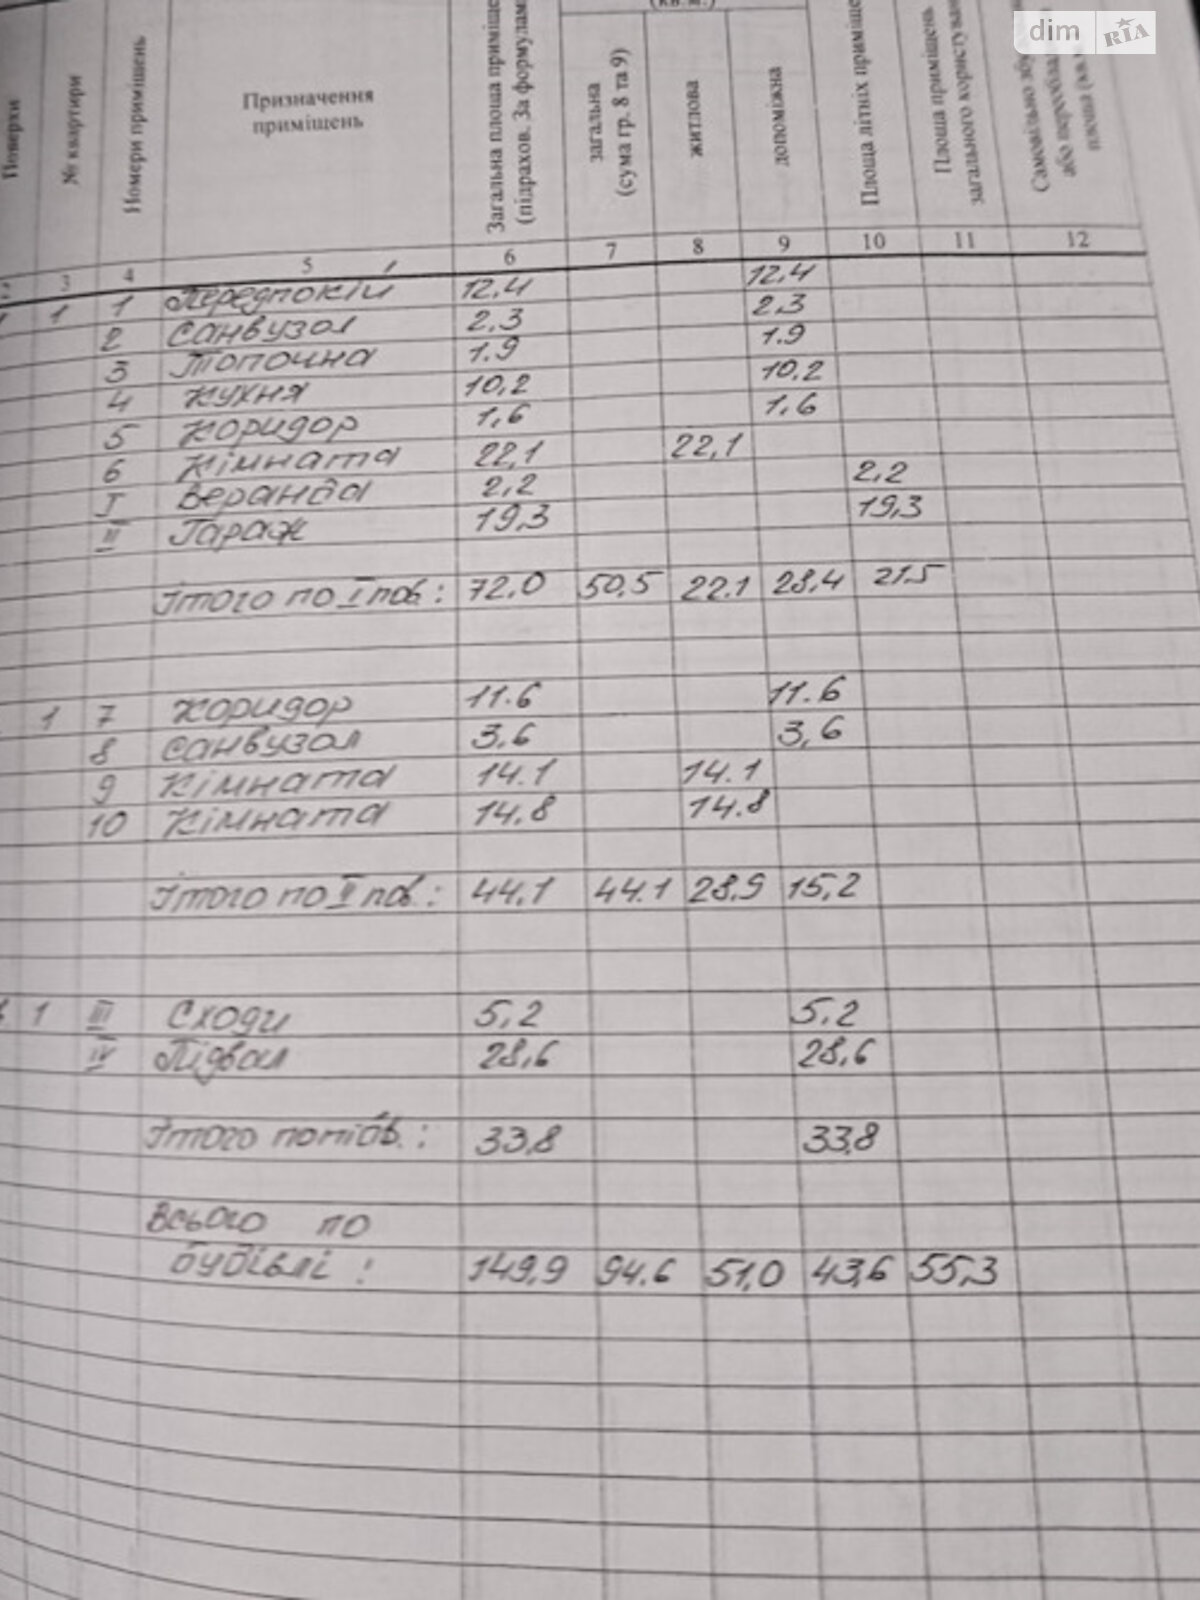 dim RIA
(кв.м.)
Поверхи
№ квартири
Номери приміщень
Призначення
приміщень
Загальна площа приміще
(підрахов. За формулам
загальна
(сума гр. 8 та 9)
житлова
допоміжна
Площа літніх приміще
Площа приміщень
загального користуван
Самовільно збу
або переоблад
площа (кв.
3 4 5 6 7 8 9 10 11 12
1 1 Передпокій 12,4 12,4
2 Санвузол 2,3 2,3
3 Топочна 1.9 1.9
4 Кухня 10,2 10.2
5 Коридор 1,6 1,6
6 Кімната 22,1 22,1
I Веранда 2,2 2,2
II Гараж 19,3 19,3
Ітого по I пов.: 72.0 50,5 22.1 28,4 21.5
1 7 Коридор 11.6 11.6
8 Санвузол 3.6 3,6
9 Кімната 14.1 14.1
10 Кімната 14.8 14.8
Ітого по II пов.: 44,1 44.1 28,9 15,2
1 III Сходи 5,2 5,2
IV Підвал 28,6 28,6
Ітого по підв.: 33,8 33,8
Всього по
будівлі: 149,9 94.6 51,0 43,6 55,3